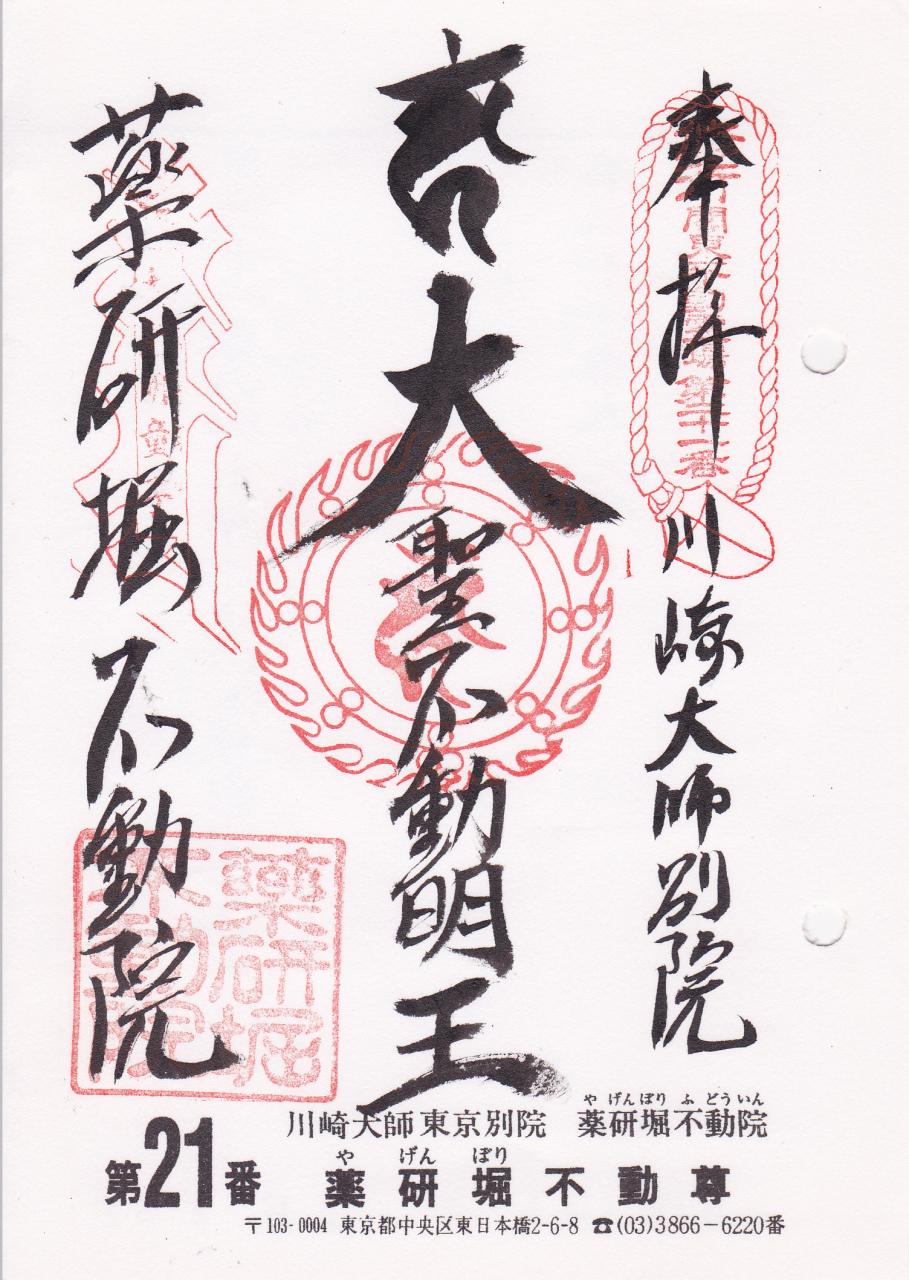 奉拝 川崎大師別院
大聖不動明王
薬研堀不動院
薬研堀
不動院
川崎大師東京別院 薬研堀不動院
やげんぼりふどういん
第21番 薬研堀不動尊
やげんぼり
〒103-0004 東京都中央区東日本橋2-6-8 ☎(03)3866-6220番